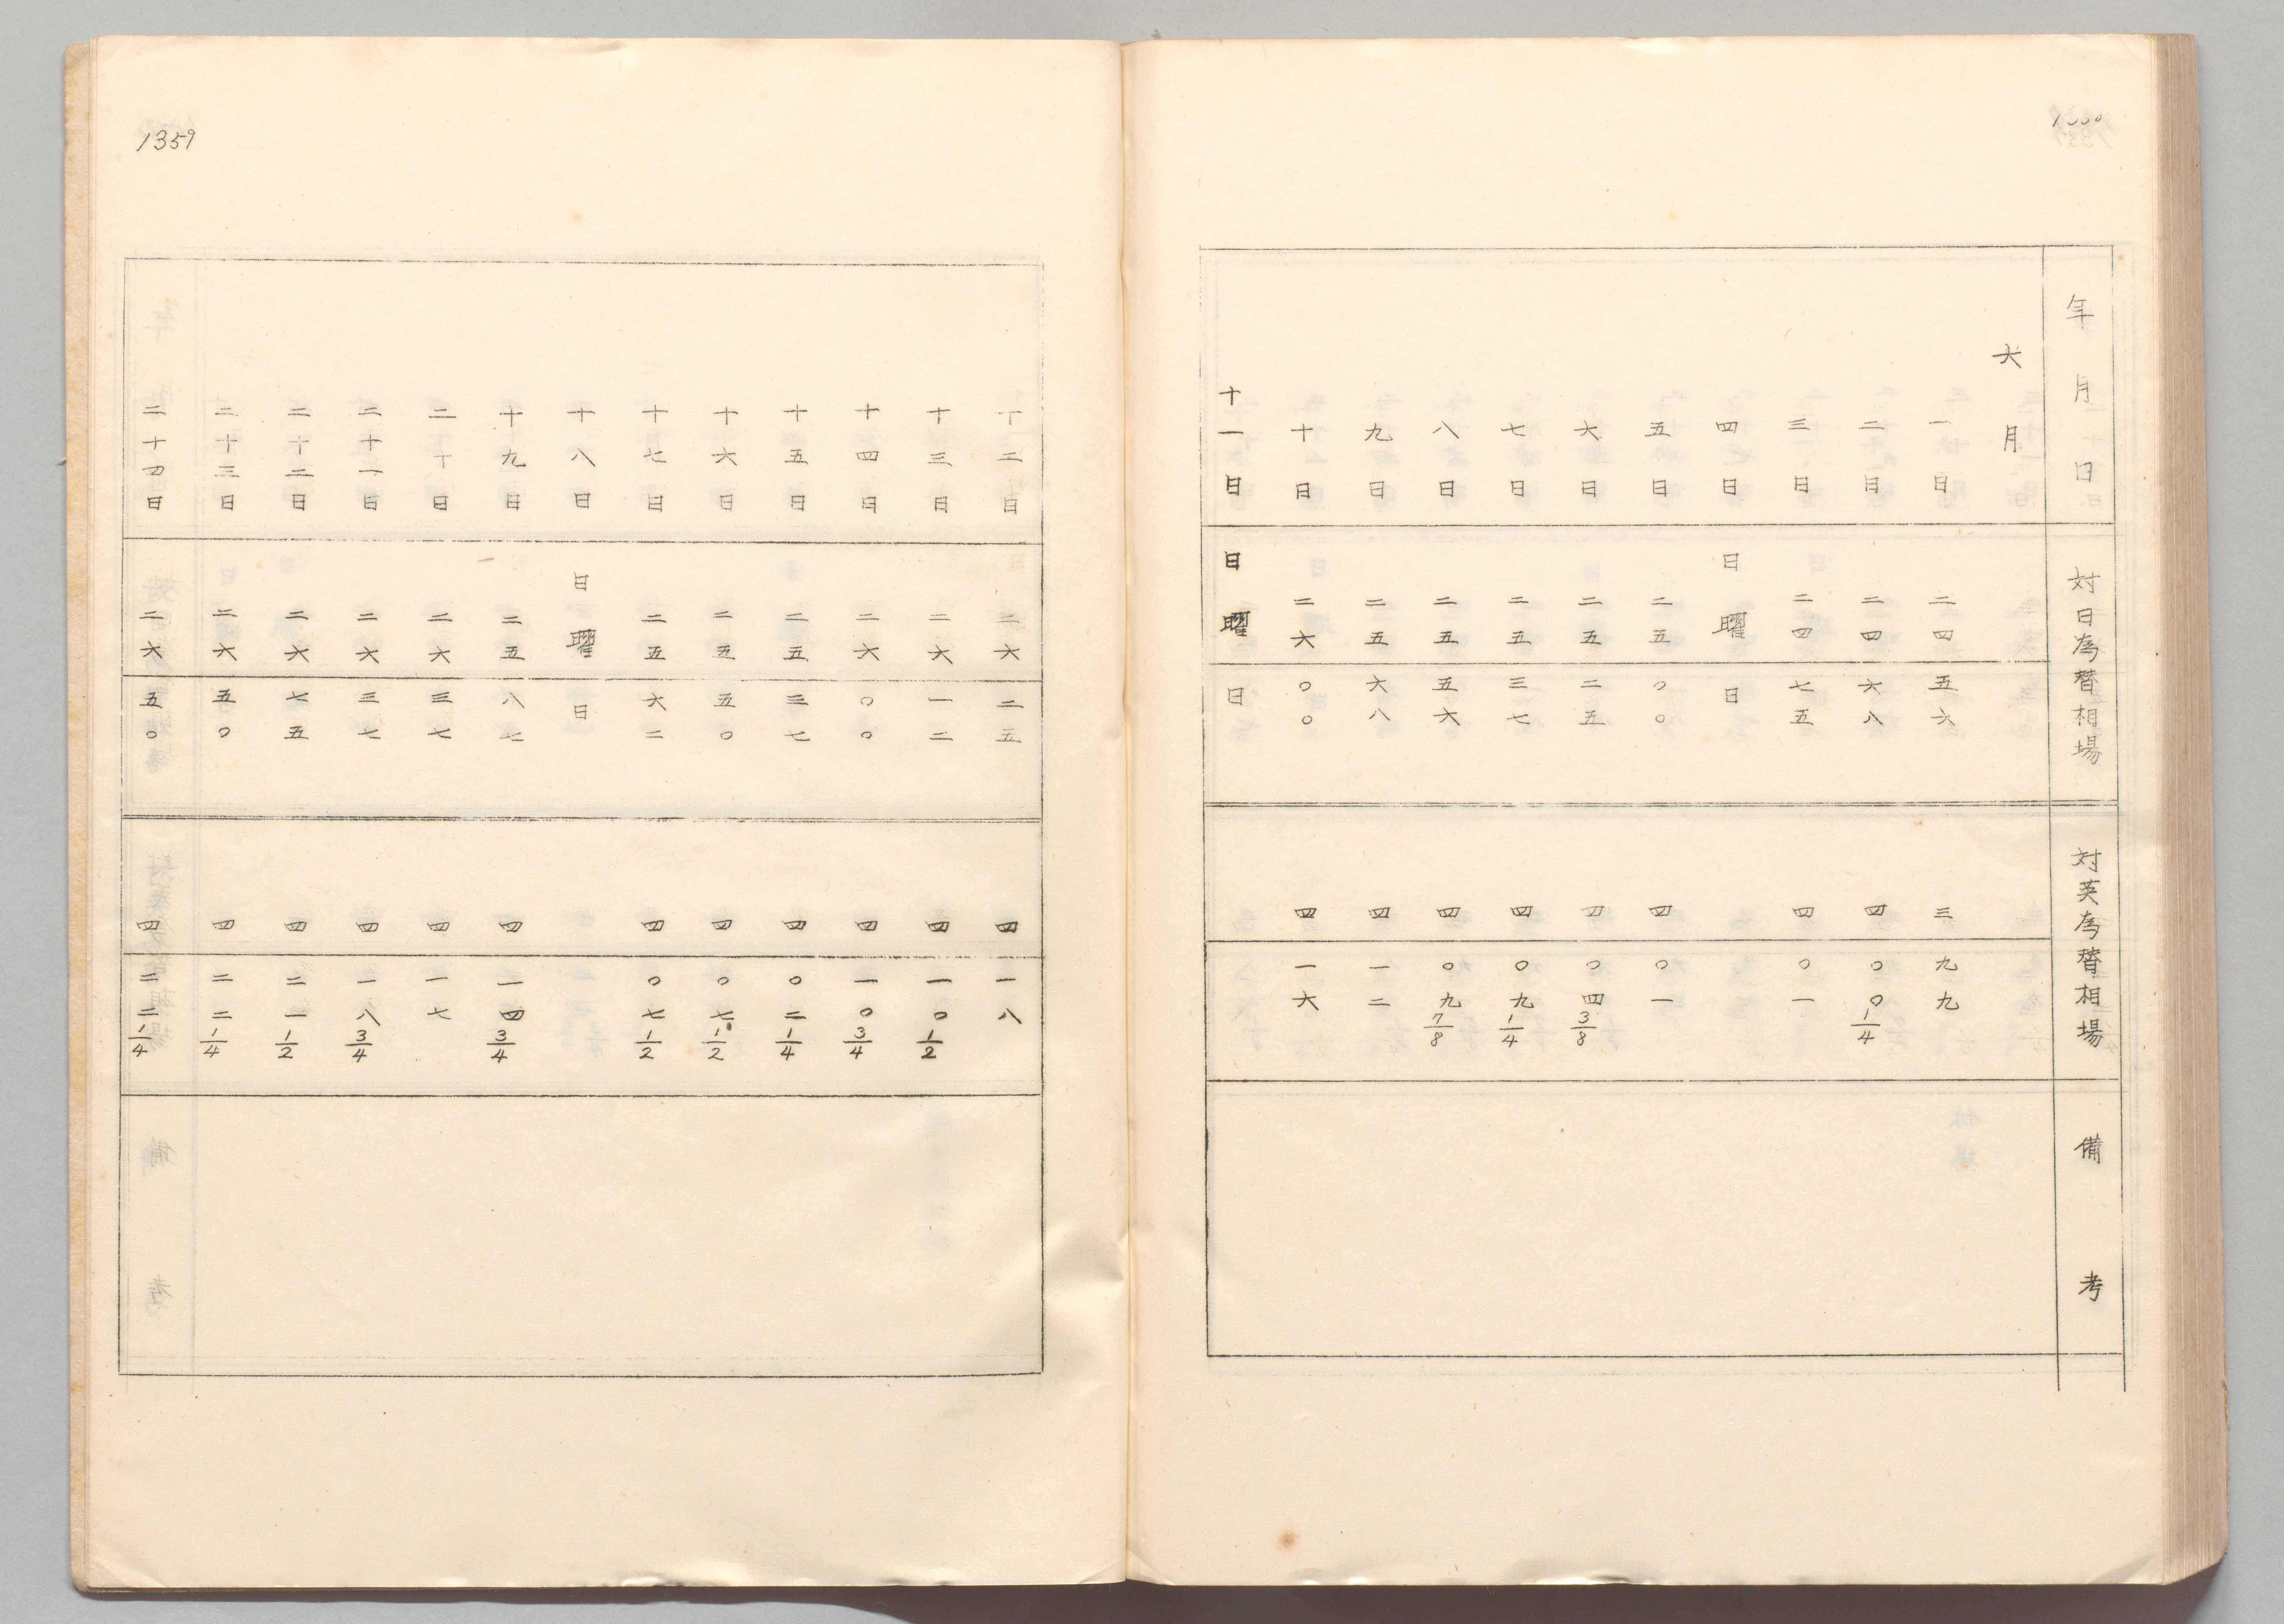 年月日 対日為替相場 対英為替相場 備考
六月
一日 二四 五六 三 九九
二日 二四 六八 四 〇〇1/4
三日 二四 七五 四 〇一
四日 日曜日
五日 二五 〇〇 四 〇一
六日 二五 二五 四 〇四3/8
七日 二五 三七 四 〇九1/4
八日 二五 五六 四 〇九7/8
九日 二五 六八 四 一二
十日 二六 〇〇 四 一六
十一日 日曜日
1359
十二日 二六 二五 四 一八
十三日 二六 一二 四 一〇1/2
十四日 二六 〇〇 四 一〇3/4
十五日 二五 三七 四 〇二1/4
十六日 二五 五〇 四 〇七1/2
十七日 二五 六二 四 〇七1/2
十八日 日曜日
十九日 二五 八七 四 一四3/4
二十日 二六 三七 四 一七
二十一日 二六 三七 四 一八3/4
二十二日 二六 七五 四 二一1/2
二十三日 二六 五〇 四 二二1/4
二十四日 二六 五〇 四 二二1/4